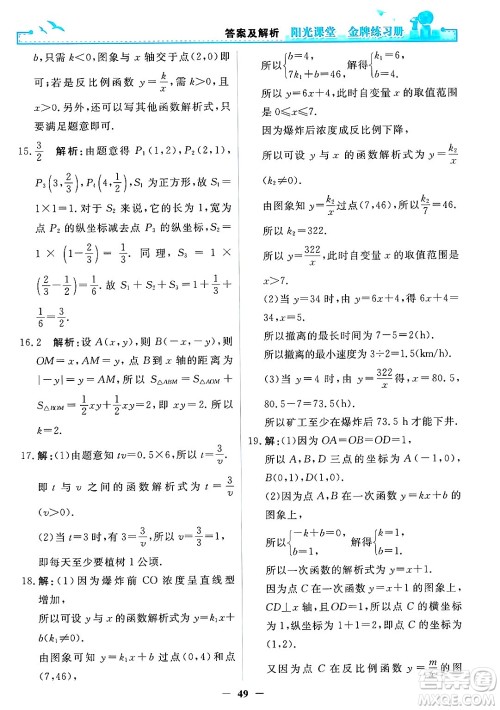 答案及解析 阳光课堂 金牌练习册
b,只需k>0,图象与x轴交于正半轴即
可;若是反比例函数y=k/x(k≠0),只需
k>0.还可以写其他函数解析式,只
要满足题意即可.
15. 3/2 解析:由题意得P₁(1,2),P₂(2,1),
P₃(3,2/3),P₄(4,1/2).由题图知,S₁=
1×1=1.对于S₂来说,长为1,宽为
点P₂的纵坐标减去点P₃的纵坐标,
S₂=1×(1-2/3)=1/3.同理,S₃=1×
(2/3-1/2)=1/6.故S₁+S₂+S₃=1+1/3+
1/6=3/2.
16.2 解析:设A(x,y),B(-x,-y),则
OM=x,AM=y,点B到x轴的距离为
|-y|=y,所以S△ABM=S△AOM+
S△BOM=1/2xy+1/2xy=xy=2.
17.解:(1)由题意知tv=0.5×6,所以t=3/v,
即t与v之间的函数解析式为t=3/v
(v>0).
(2)当t=3时,有3=3/v,所以v=1,
即每天至少要植树1公顷.
18.解:(1)因为爆炸前CO浓度呈直线型
增加,
所以可设y与x的函数解析式为y=
k₁x+b(k₁≠0).
由图象可知y=k₁x+b过点(0,4),
(7,46),
所以{b=4,7k₁+b=46.解得{k₁=6,b=4.
所以y=6x+4,此时自变量x的取值范围是
0≤x≤7.
因为爆炸后浓度成反比例下降,
所以可设y与x的函数解析式为y=k₂/x
(k₂≠0).
由图象知y=k₂/x过点(7,46),所以k₂/7=46.
所以k₂=322.
所以y=322/x,此时自变量x的取值范围是
x>7.
(2)当y=34时,由y=6x+4得,6x+4=
34,x=5.
所以撤离的最长时间为7-5=2(h).
所以撤离的最小速度为3÷2=1.5(km/h).
(3)当y=4时,由y=322/x得,x=80.5,
80.5-7=73.5(h).
所以矿工至少在爆炸后73.5 h才能下井.
19.解:(1)因为OA=OB=OD=1,
所以A,B,D三点的坐标为A(-1,0),
B(0,1),D(1,0).
(2)因为点A,B在一次函数y=kx+b的
图象上,
所以{-k+b=0,b=1,解得{k=1,b=1,
所以一次函数的解析式为y=x+1.
因为点C在一次函数y=x+1的图象上,且
CD⊥x轴,所以点C的横坐标为1,纵坐标
为1+1=2,所以点C的坐标为
(1,2).
又因为点C在反比例函数y=m/x的图
49